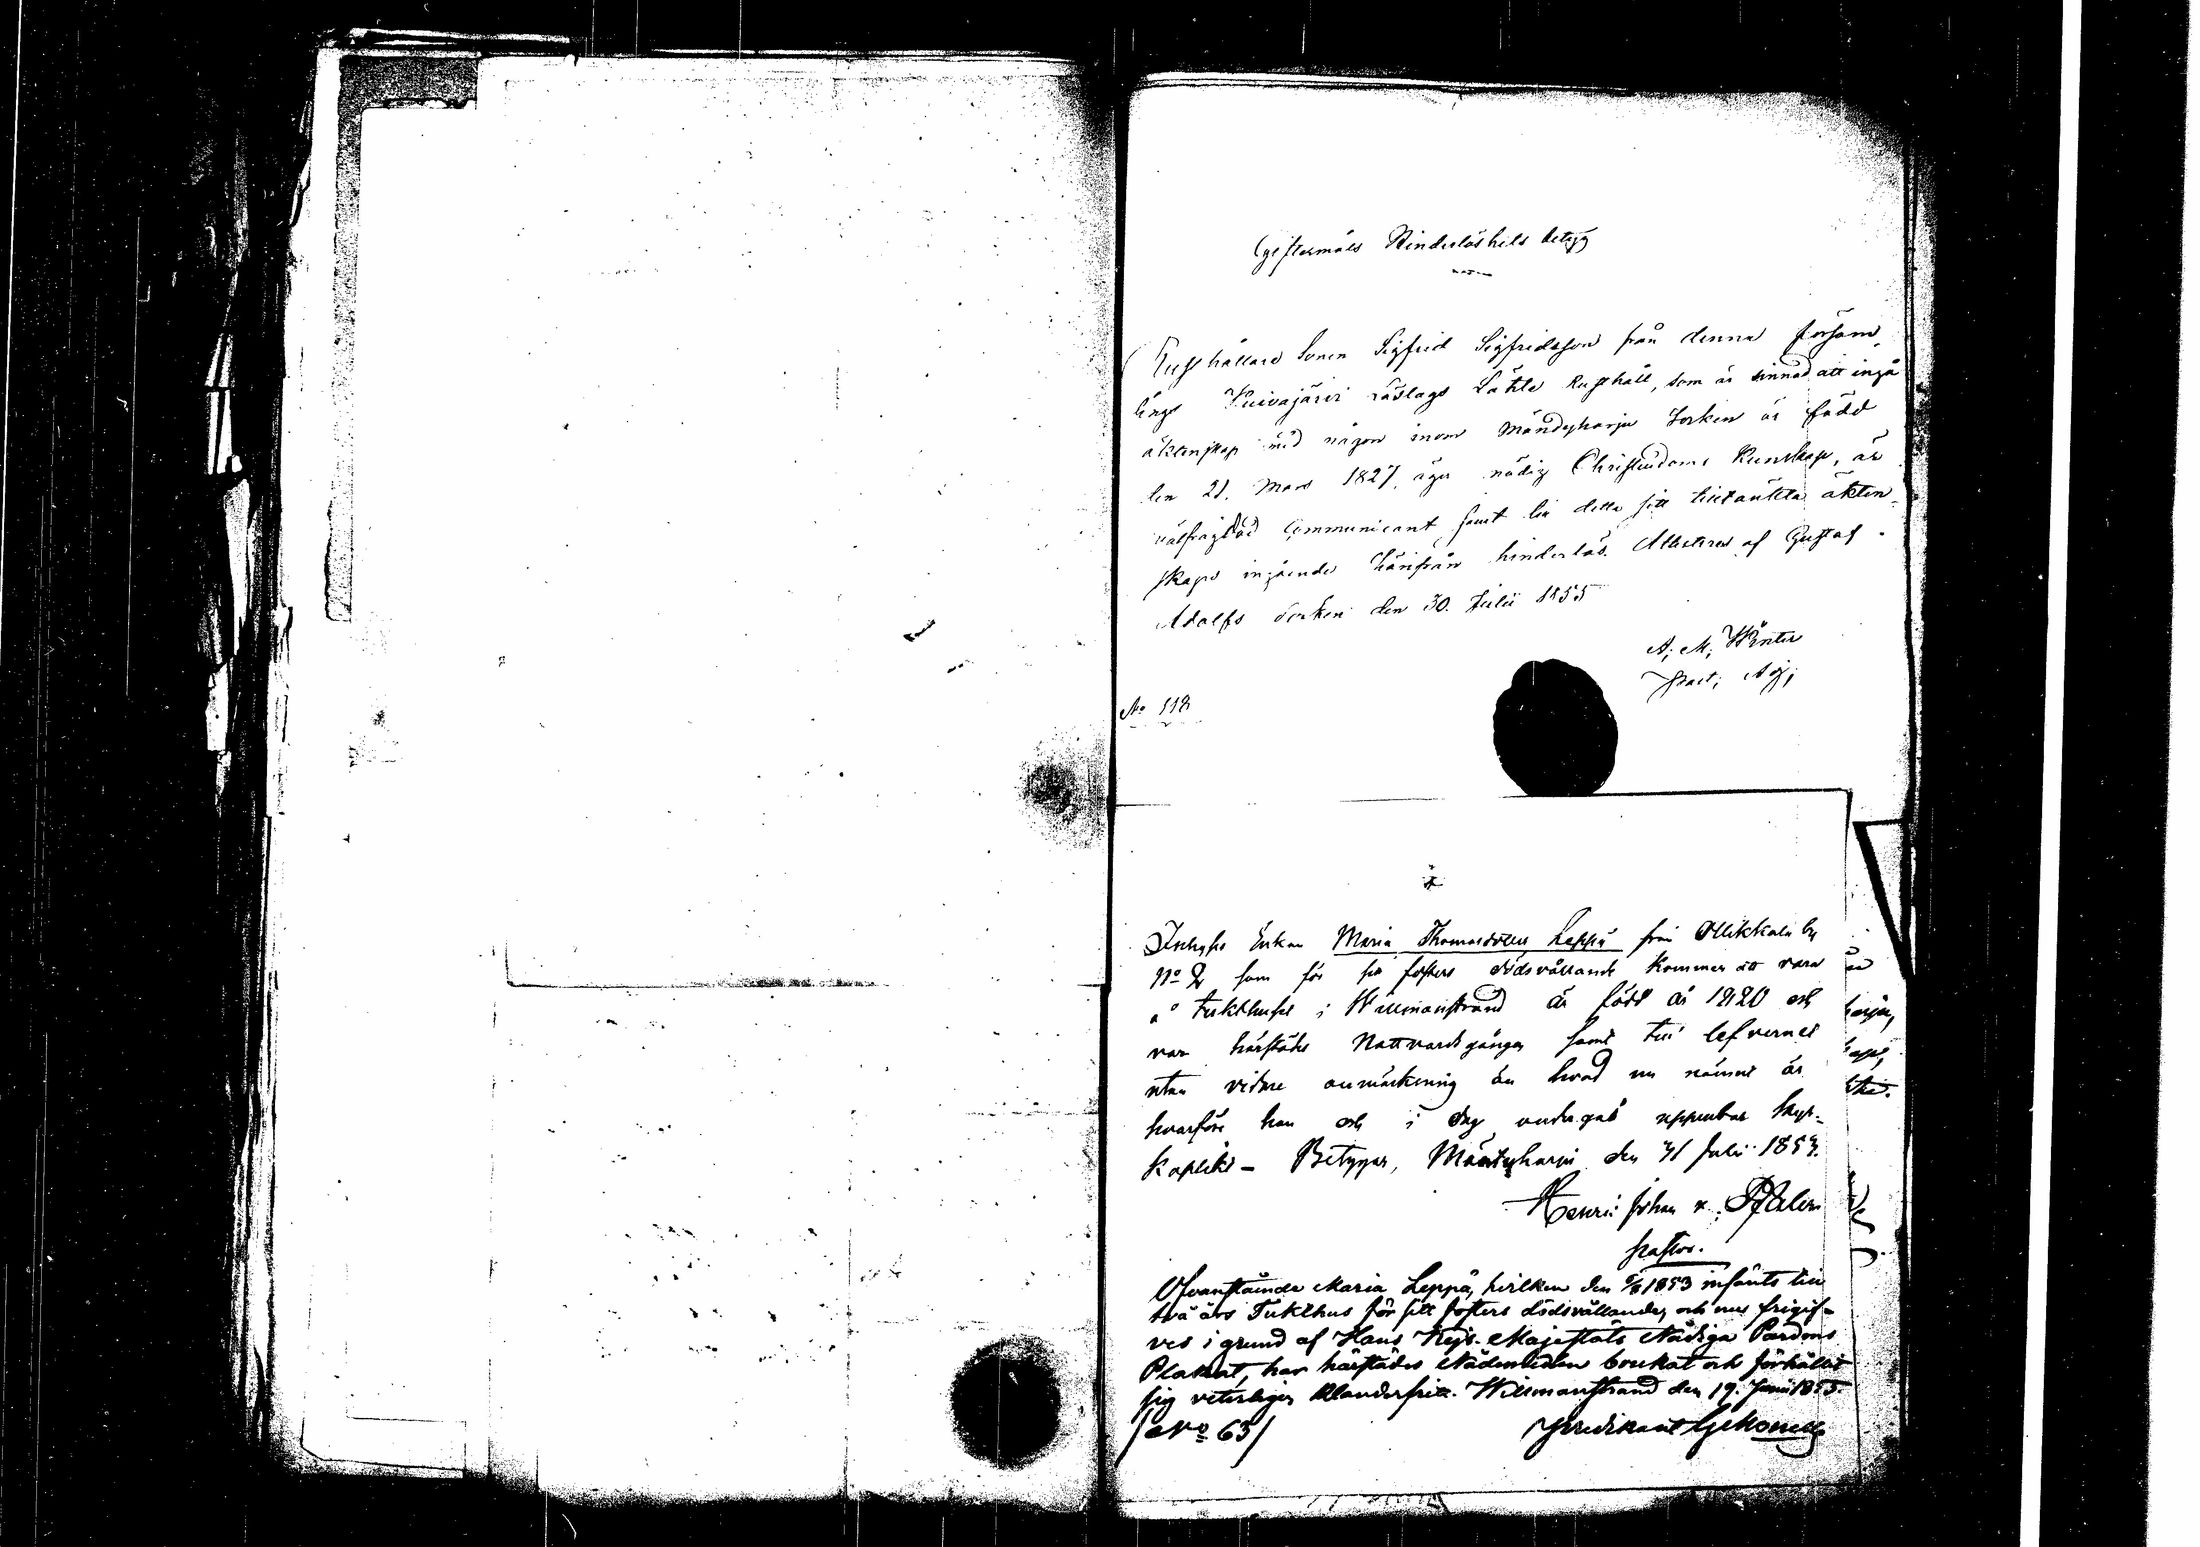 Giftermåls Hinderlöshets betyg
Rusthållare Sonen Sigfrid Sigfridsson från denna försam-
lings Kuivajärvi Råslags Lahto Rusthåll, som är sinnad att ingå
äktenskap med någon inom Mändyharju Socken är född
den 21. Mars 1827, äger nödig Christendoms Kunskap, är
välfrägdad Communicant samt till detta sitt tilltänkta äkten-
skaps ingående härifrån hinderlös. Attesteras af Gustaf
Adolfs Socken den 30. Julii 1855
A. M. Winter
Past. Adj.
No 118
Inhyses Enkan Maria Thomasdotter Leppä från Ollikkala by
No 2 som för sit fosters dödsvållande kommer att vara
å Tukthuset i Willmanstrand är född år 1820 och
var härstädes Nattvardsgånger samt till lefvernet
utan vidare anmärkning än hvad nu nämnt är
hvarföre hon och i dag undergåt uppenbar Kyr-
koplikt – Betygar, Mäntyharju den 31 Julii 1853.
Henric Johan v. Pfaler
pastor.
Ofvanstående Maria Leppä, hvilken den 5/8 1853 infants till
två års Tukthus för sitt fosters dödsvållande, och nu frigif-
ves i grund af Hans Kejs. Majestäts Nådiga Pardons
Plakat, har härstädes Nådemedlen brukat och förhållit
sig veterligen klanderfritt. Willmanstrand den 19. Junii 1855.
/No 63/
Predikant